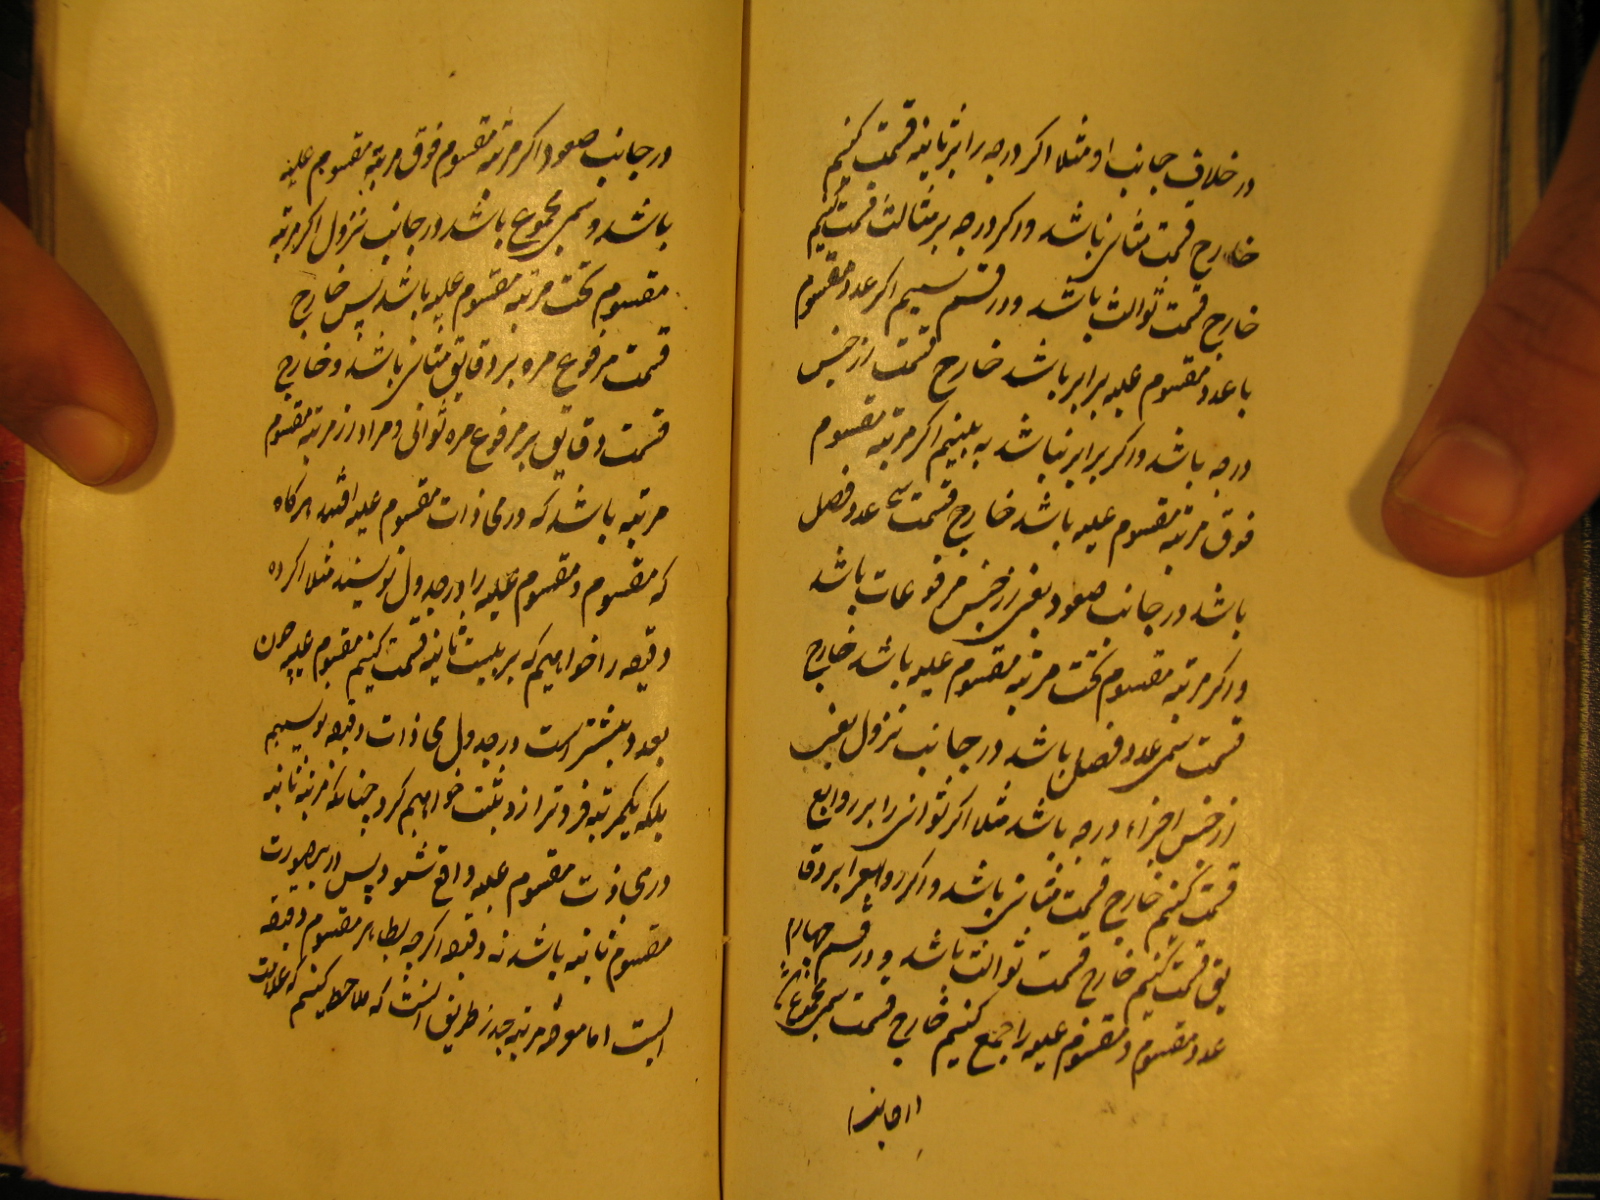 در خلاف جانب او مثلا اکر درجه را بر ثانیه قسمت کنیم
خارج قسمت مثانی باشد و اکر درجه بر ثالثه قسمت کنیم
خارج قسمت ثوالث باشد و در قسم سیم اکر عدد مقسوم
با عدد مقسوم علیه برابر باشد خارج قسمت از جنس
درجه باشد و اکر برابر نباشد به بینیم اکر مرتبه مقسوم
فوق مرتبه مقسوم علیه باشد خارج قسمت سمی عدد فصل
باشد در جانب صعود یعنی از جنس مرفوعات باشد
و اکر مرتبه مقسوم تحت مرتبه مقسوم علیه باشد خارج
قسمت سمی عدد فصل باشد در جانب نزول یعنی
از جنس اجزاء درجه باشد مثلا اکر ثوانی را بر روابع
قسمت کنیم خارج قسمت مثانی باشد و اکر روابع را بر دقا
یق قسمت کنیم خارج قسمت ثوالث باشد و در قسم چهارم
عدد مقسوم و مقسوم علیه را جمع کنیم خارج قسمت سمی مجموع
در جانب
در جانب صعود اکر مرتبه مقسوم فوق مرتبه مقسوم علیه
باشد و سمی مجموع باشد در جانب نزول اکر مرتبه
مقسوم تحت مرتبه مقسوم علیه باشد پس خارج
قسمت مرفوع مره بر دقایق مثانی باشد و خارج
قسمت دقایق بر مرفوع مره ثوانی و مراد از مرتبه مقسوم
مرتبه باشد که در محاذات مقسوم علیه افتد هرکاه
که مقسوم و مقسوم علیه را در جدول نویسند مثلا اکر ده
دقیقه را خواهیم که بر بیست ثانیه قسمت کنیم مقسوم علیه چون
بعدد بیشتر است در جدول محاذات دقیقه نویسیم
بلکه یکمرتبه فروتر از و ثبت خواهیم کرد چنانکه مرتبه ثانیه
در محاذات مقسوم علیه واقع شود پس در ینصورت
مقسوم ثانیه باشد نه دقیقه اکرچه بظاهر مقسوم دقیقه
است اما معرفه مرتبه جدر طریق انست که ملاحظه کنیم که علامت